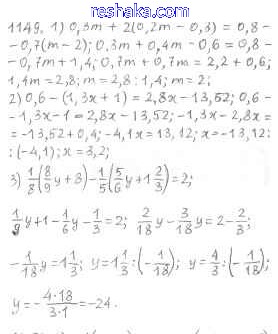 reshaka.com
1149. 1) 0,3m + 2(0,2m - 0,3) = 0,8 -
- 0,7(m - 2); 0,3m + 0,4m - 0,6 = 0,8 -
- 0,7m + 1,4; 0,7m + 0,7m = 2,2 + 0,6;
1,4m = 2,8; m = 2,8 : 1,4; m = 2;
2) 0,6 - (1,3x + 1) = 2,8x - 13,52; 0,6 -
- 1,3x - 1 = 2,8x - 13,52; -1,3x - 2,8x =
= -13,52 + 0,4; -4,1x = 13,12; x = -13,12 :
: (-4,1); x = 3,2;
3) 1/8(8/9y + 8) - 1/5(5/6y + 1 2/3) = 2;
1/9y + 1 - 1/6y - 1/3 = 2; 2/18y - 3/18y = 2 - 2/3;
-1/18y = 1 1/3; y = 1 1/3 : (-1/18); y = 4/3 : (-1/18);
y = -4·18/3·1 = -24.